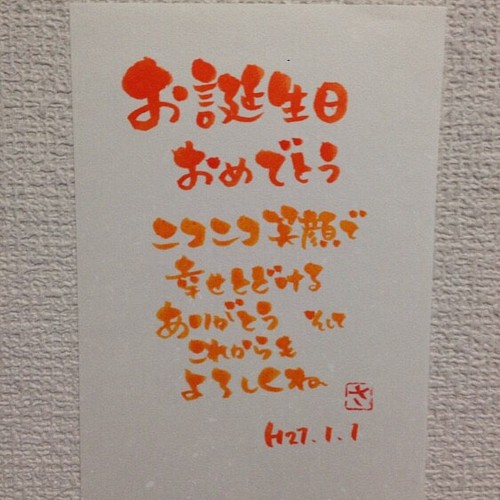 お誕生日
おめでとう
ニコニコ笑顔で
幸せとどける
ありがとう そして
これからも
よろしくね
さ
H27.1.1